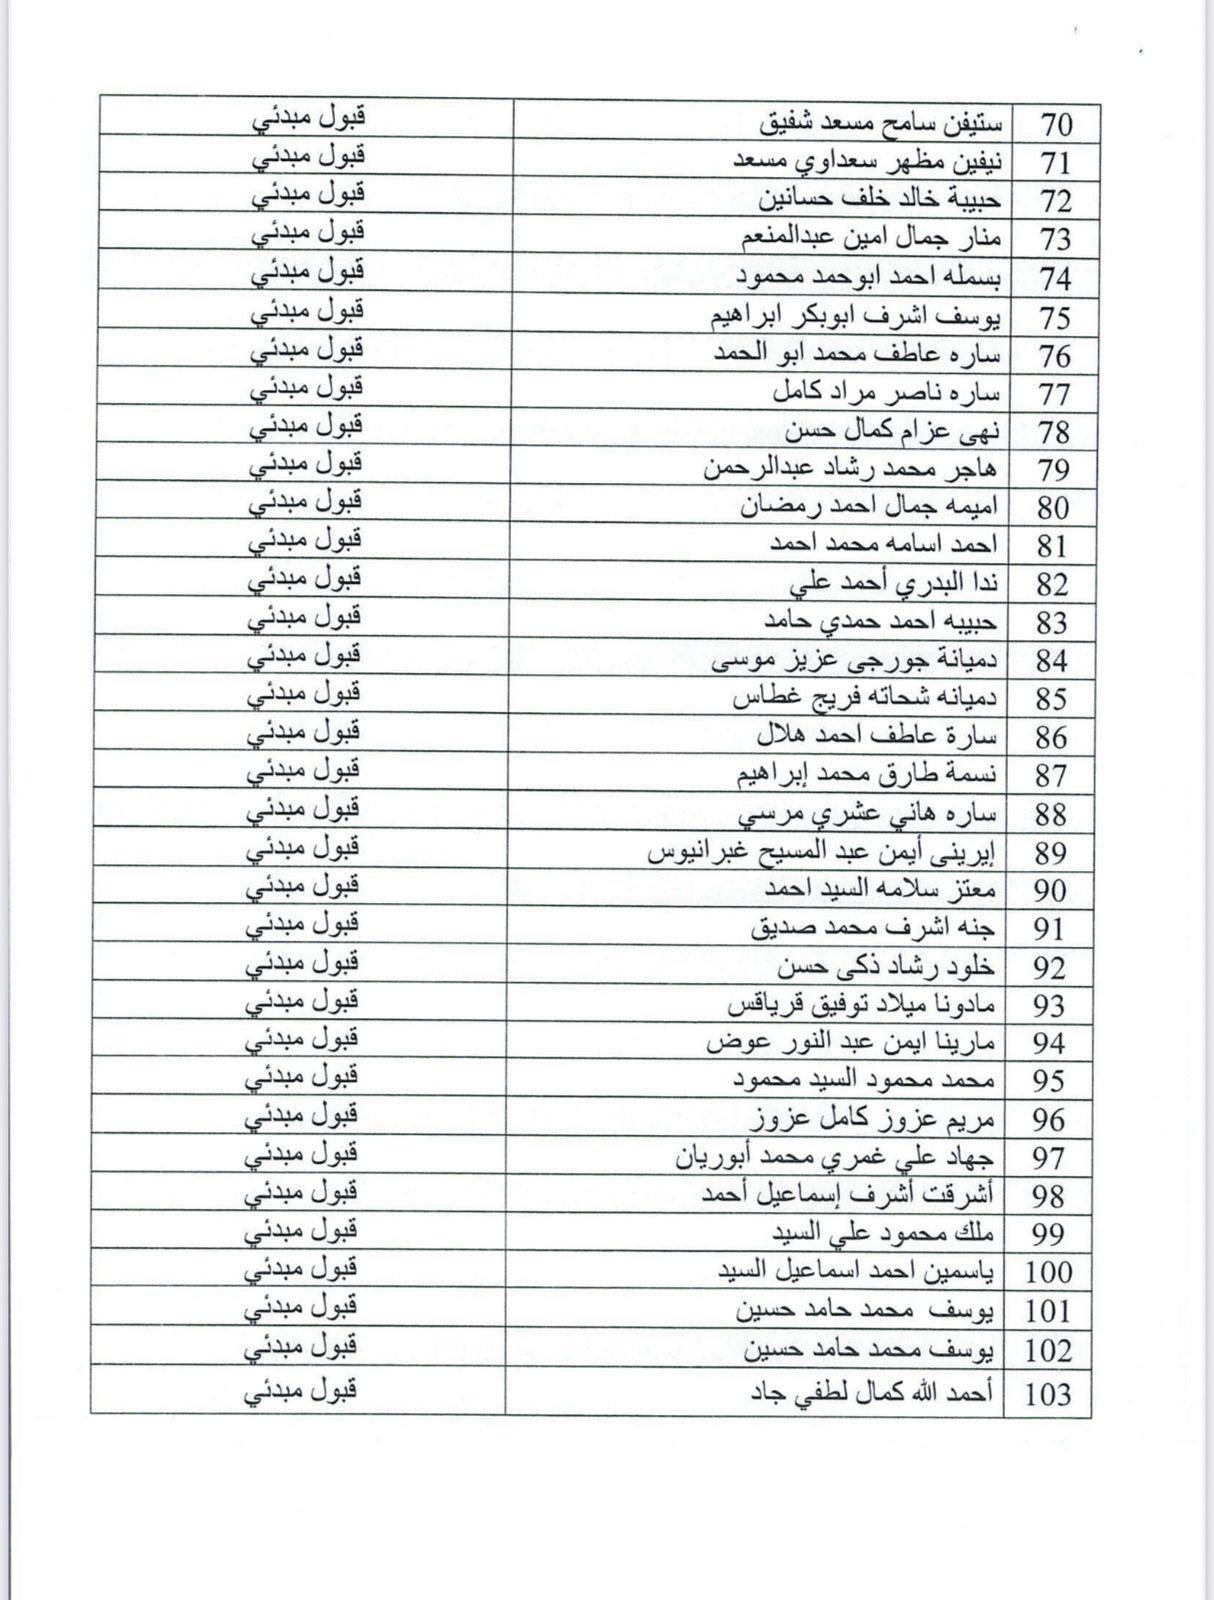 70 ستيفن سامح مسعد شفيق قبول مبدئي
71 نيفين مظهر سعداوي مسعد قبول مبدئي
72 حبيبة خالد خلف حسانين قبول مبدئي
73 منار جمال امين عبدالمنعم قبول مبدئي
74 بسمله احمد ابوحمد محمود قبول مبدئي
75 يوسف اشرف ابوبكر ابراهيم قبول مبدئي
76 ساره عاطف محمد ابو الحمد قبول مبدئي
77 ساره ناصر مراد كامل قبول مبدئي
78 نهى عزام كمال حسن قبول مبدئي
79 هاجر محمد رشاد عبدالرحمن قبول مبدئي
80 اميمه جمال احمد رمضان قبول مبدئي
81 احمد اسامه محمد احمد قبول مبدئي
82 ندا البدري أحمد علي قبول مبدئي
83 حبيبه احمد حمدي حامد قبول مبدئي
84 دميانة جورجى عزيز موسى قبول مبدئي
85 دميانه شحاته فريج غطاس قبول مبدئي
86 سارة عاطف احمد هلال قبول مبدئي
87 نسمة طارق محمد إبراهيم قبول مبدئي
88 ساره هاني عشري مرسي قبول مبدئي
89 إيرينى أيمن عبد المسيح غبرانيوس قبول مبدئي
90 معتز سلامه السيد احمد قبول مبدئي
91 جنه اشرف محمد صديق قبول مبدئي
92 خلود رشاد ذكى حسن قبول مبدئي
93 مادونا ميلاد توفيق قرياقس قبول مبدئي
94 مارينا ايمن عبد النور عوض قبول مبدئي
95 محمد محمود السيد محمود قبول مبدئي
96 مريم عزوز كامل عزوز قبول مبدئي
97 جهاد علي غمري محمد أبوريان قبول مبدئي
98 أشرقت أشرف إسماعيل أحمد قبول مبدئي
99 ملك محمود علي السيد قبول مبدئي
100 ياسمين احمد اسماعيل السيد قبول مبدئي
101 يوسف محمد حامد حسين قبول مبدئي
102 يوسف محمد حامد حسين قبول مبدئي
103 أحمد الله كمال لطفي جاد قبول مبدئي